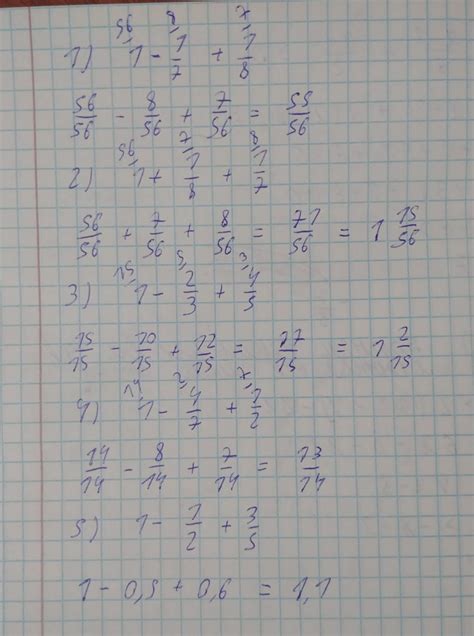 1) ⁵⁶⁾1 - ⁸⁾1/7 + ⁷⁾1/8
56/56 - 8/56 + 7/56 = 55/56
2) ⁵⁶⁾1 + ⁷⁾1/8 + ⁸⁾1/7
56/56 + 7/56 + 8/56 = 71/56 = 1 15/56
3) ¹⁵⁾1 - ⁵⁾2/3 + ³⁾4/5
15/15 - 10/15 + 12/15 = 17/15 = 1 2/15
4) ¹⁴⁾1 - ²⁾4/7 + ⁷⁾1/2
14/14 - 8/14 + 7/14 = 13/14
5) 1 - 1/2 + 3/5
1 - 0,5 + 0,6 = 1,1